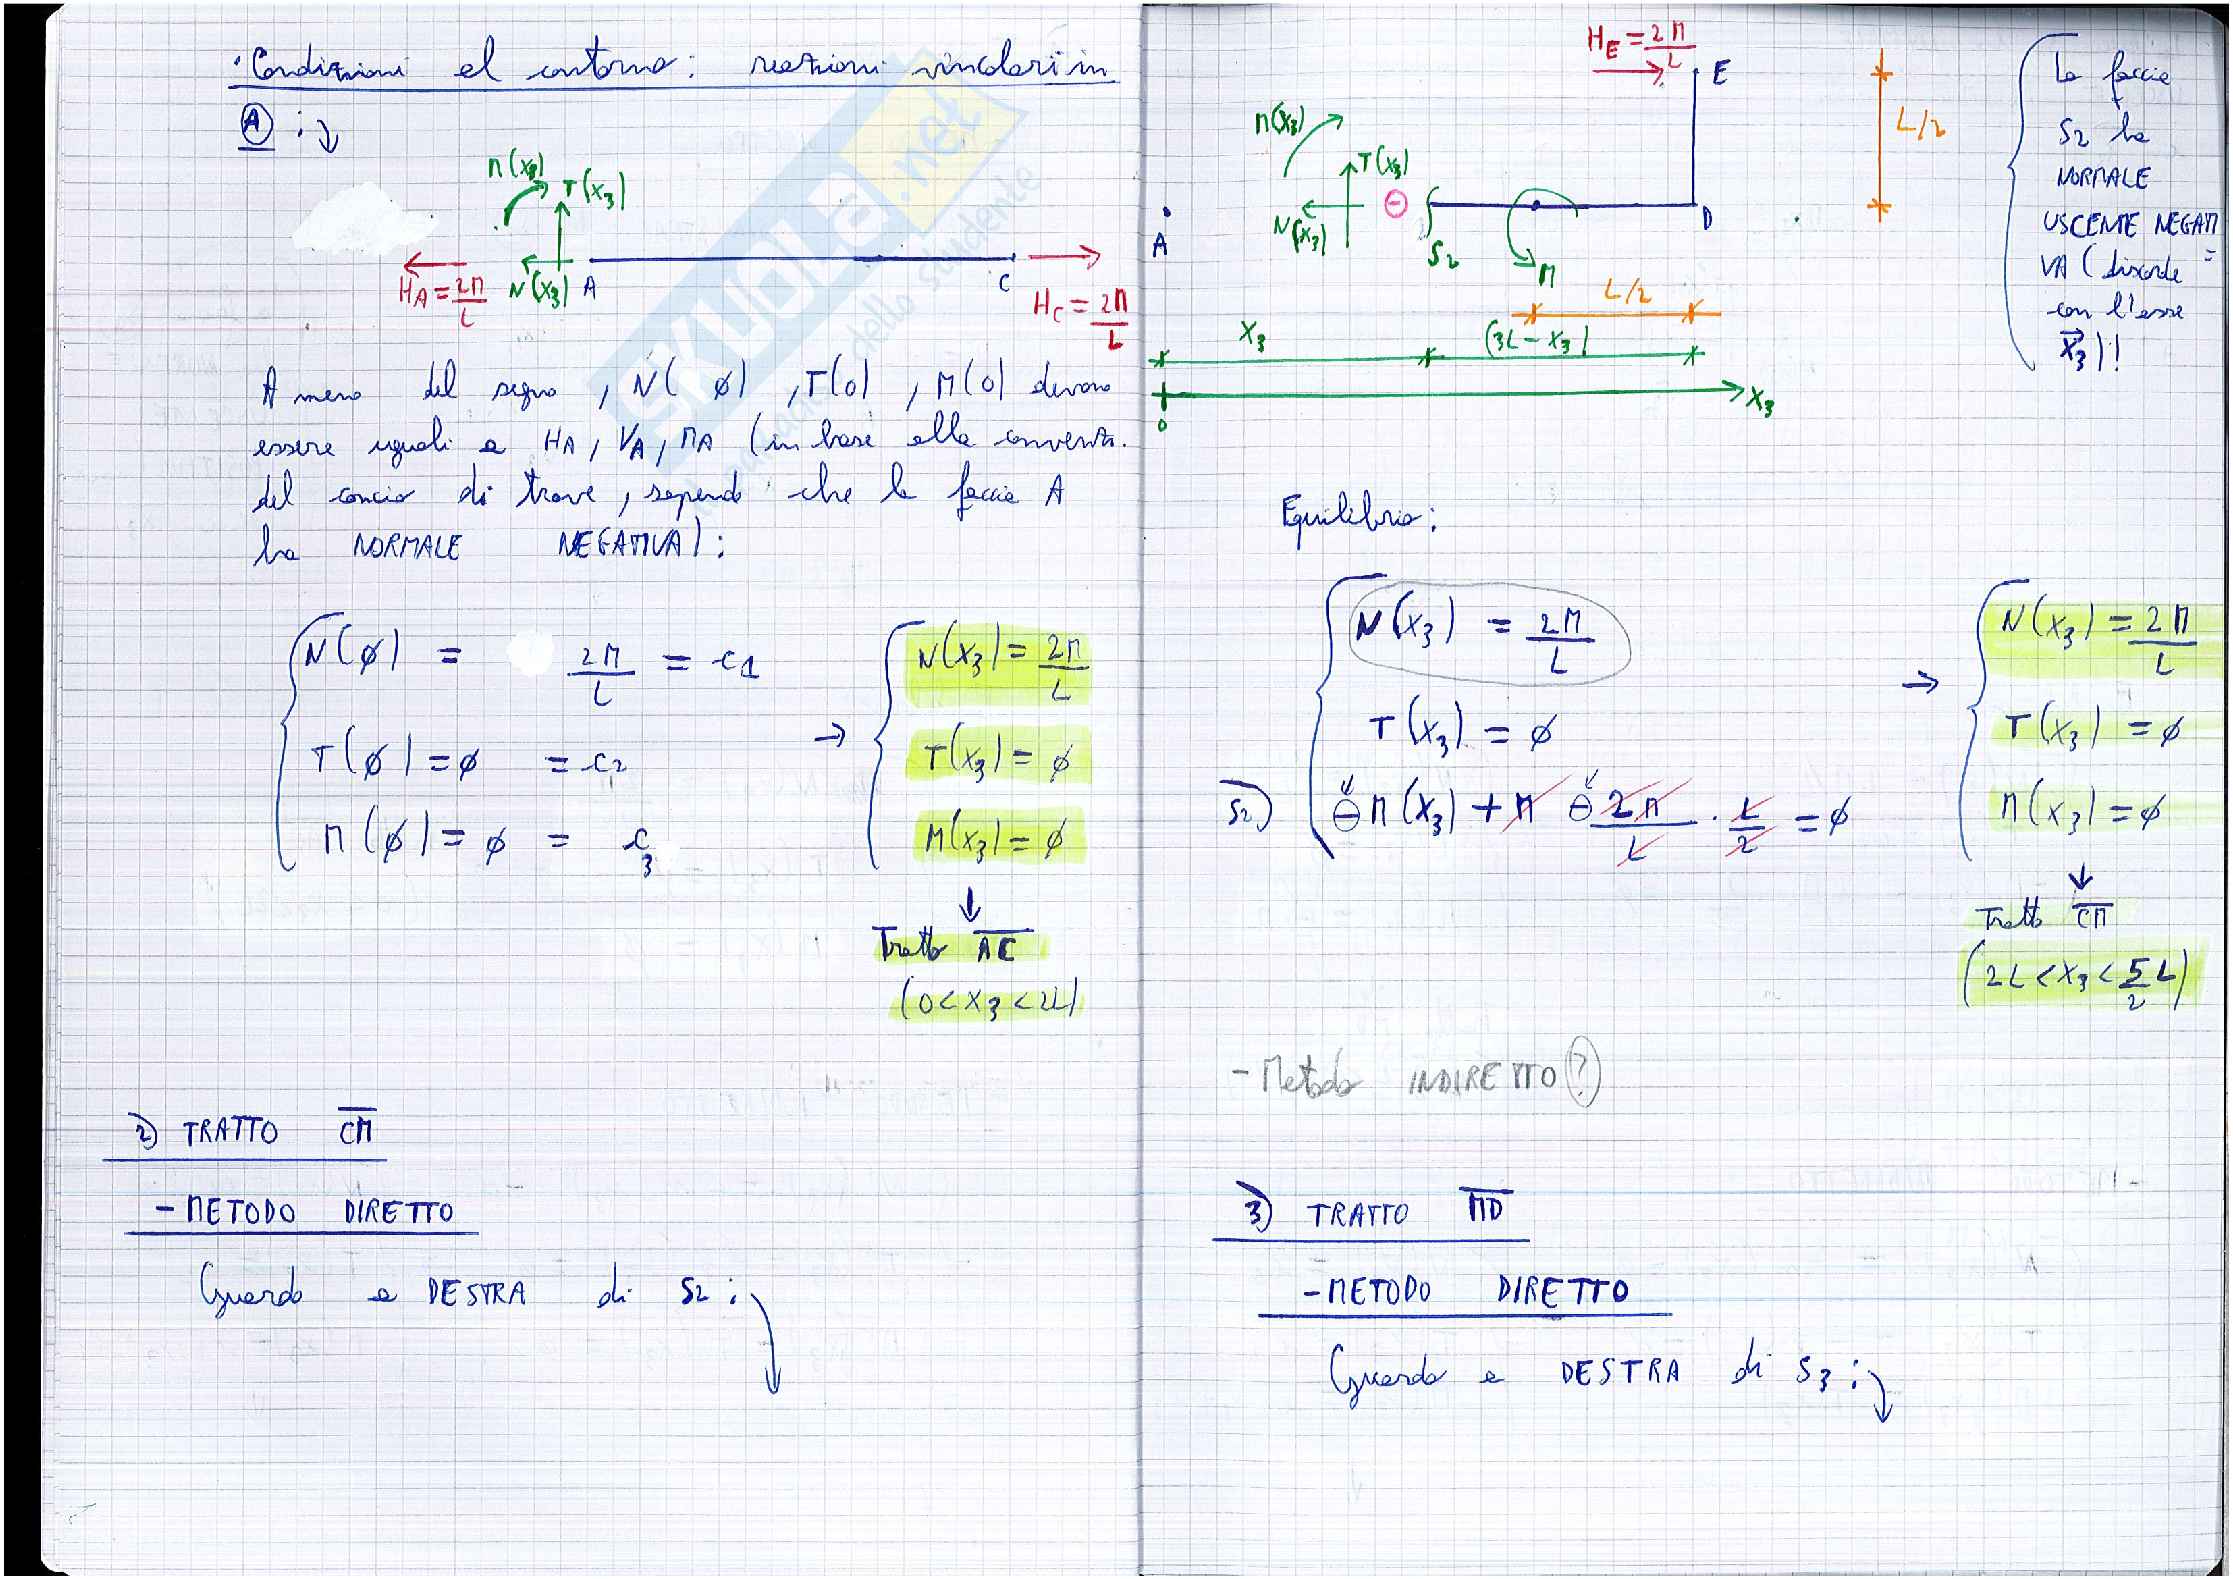 · Condizioni al contorno: reazioni vincolari in
A :
M(x₃)
T(x₃)
N(x₃)
A
C
H_A = 2M/L
H_C = 2M/L
A meno del segno, N(ø), T(0), M(0) devono
essere uguali a H_A, V_A, M_A (in base alla convenz.
del concio di trave, sapendo che la faccia A
ha NORMALE NEGATIVA):
N(ø) = 2M/L = c₁
T(ø) = ø = c₂
M(ø) = ø = c₃
→
N(x₃) = 2M/L
T(x₃) = ø
M(x₃) = ø
↓
Tratto AC
(0 < x₃ < 2L)
2) TRATTO CM
- METODO DIRETTO
Guardo a DESTRA di S₂:
H_E = 2M/L
E
M(x₃)
T(x₃)
N(x₃)
⊖
S₂
M
D
A
L/2
L/2
x₃
(3L - x₃)
0
x₃
La faccia
S₂ ha
NORMALE
USCENTE NEGATI
VA (discorde
con l'asse
x₃)!
Equilibrio:
N(x₃) = 2M/L
T(x₃) = ø
S₂) ⊖ M(x₃) + M ⊖ 2M/L · L/2 = ø
→
N(x₃) = 2M/L
T(x₃) = ø
M(x₃) = ø
↓
Tratto CM
(2L < x₃ < 5/2 L)
- Metodo INDIRETTO (?)
3) TRATTO MD
- METODO DIRETTO
Guardo a DESTRA di S₃:
SKUOLA.net
dello studente